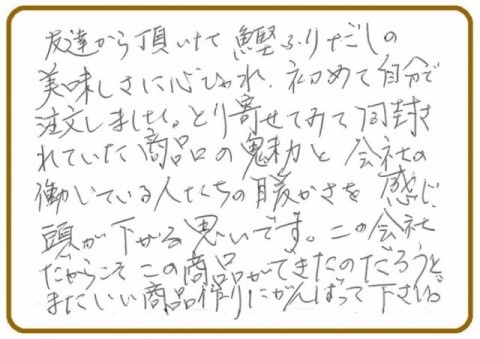 友達から頂いて鰹ふりだしの
美味しさに心ひかれ、初めて自分で
注文しました。とり寄せてみて同封さ
れていた商品の魅力と会社の
働いている人たちの暖かさを感じ
頭が下がる思いです。この会社
だからこそこの商品ができたのだろうと。
またいい商品作りにがんばって下さい。